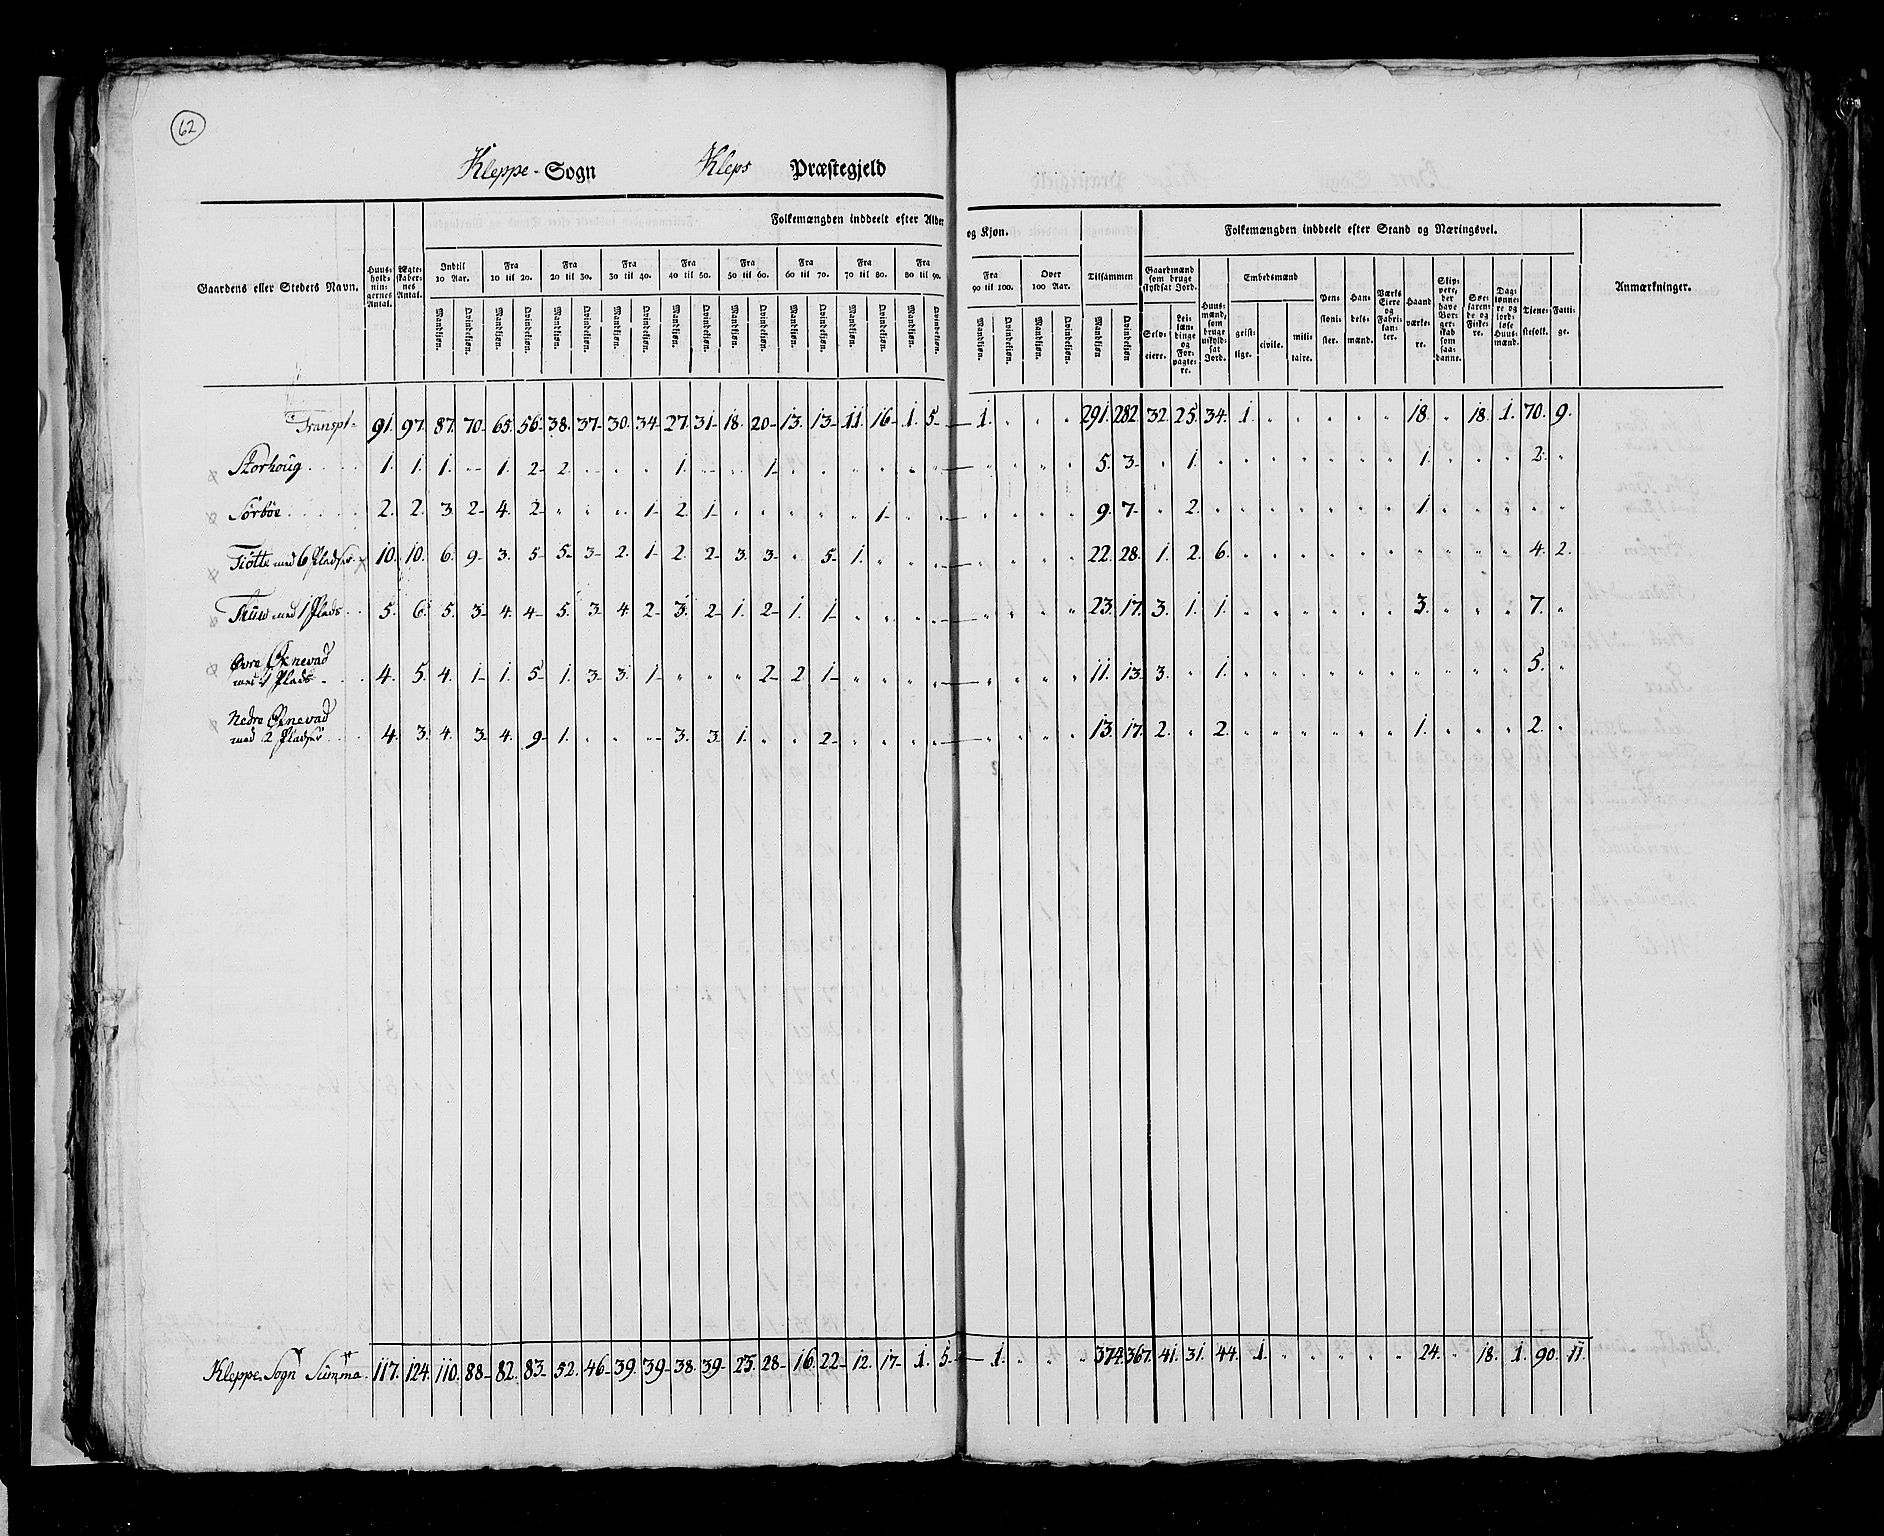 62
Kleppe - Sogn Kleps Præstegjeld
Gaardens eller Stedets Navn.
Huus-holdnin-gernes Antal.
Ægte-skaber-nes Antal.
Folkemængden inddeelt efter Alder og Kjøn.
Indtil 10 Aar.
Fra 10 til 20.
Fra 20 til 30.
Fra 30 til 40.
Fra 40 til 50.
Fra 50 til 60.
Fra 60 til 70.
Fra 70 til 80.
Fra 80 til 90.
Fra 90 til 100.
Over 100 Aar.
Tilsammen
Mandkjøn. Qvindekjøn. Mandkjøn. Qvindekjøn. Mandkjøn. Qvindekjøn. Mandkjøn. Qvindekjøn. Mandkjøn. Qvindekjøn. Mandkjøn. Qvindekjøn. Mandkjøn. Qvindekjøn. Mandkjøn. Qvindekjøn. Mandkjøn. Qvindekjøn. Mandkjøn. Qvindekjøn. Mandkjøn. Qvindekjøn. Mandkjøn Qvindekjøn
Folkemængden inddeelt efter Stand og Næringsvei.
Gaardmænd som bruge skyldsat Jord.
Selv-eiere.
Lei-læn-dinge og For-pagte-re.
Huus-mænd, som bruge uskyld-sat Jord.
Embedsmænd
geist-lige.
civile.
mili-taire.
Pen-sioni-ster.
Han-dels-mænd.
Værks Eiere og Fabri-kan-ter.
Haand-værke-re.
Skip-pere, der have Bor-ger-skab som saa-danne.
Søe-faren-de og Fiske-re.
Dag-lønne-re og jord-løse Huus-mænd.
Tiene-stefolk.
Fatti-ge.
Anmærkninger.
Transpt - 91. 97. 87. 70- 65. 56- 38. 37- 30. 34- 27. 31- 18. 20- 13. 13- 11. 16- 1. 5- 1. " " " 291. 282. 32. 25. 34. 1. " " " " " 18. " 18. 1. 70. 9.
Storhoug . . . . 1. 1. 1. " 1. 2- 2. " " " 1. " " 1- " " " " " " — " " " 5. 3- " 1. " " " " " " " 1. " " " 2. "
Sörböe . . . . . 2. 2. 3. 2- 4. 2- " " " 1- 2. 1- " " " " " 1- " " — " " " 9. 7- " 2. " " " " " " " 1. " " " " "
Tiötte med 6 Pladser. 10. 10. 6. 9- 3. 5- 5. 3- 2. 1- 2. 2- 3. 3- " 5- 1. " " " — " " " 22. 28. 1. 2. 6. " " " " " " " " " " 4. 2.
Thuw med 1 Plads . . 5. 6. 5. 3- 4. 4- 5. 3- 4. 2- 3. 2- 1. 2- 1. 1- " " " " — " " " 23. 17. 3. 1. 1. " " " " " " 3. " " " 7. "
Øvre Øxnevad
med 1 Plads - . . 4. 5. 4. 1- 1. 5- 1. 3- 3. 1- " " " 2- 2. 1- " " " " — " " " 11. 13. 3. " 1. " " " " " " " " " " 5. "
Nedre Øxnevad
med 2 Pladser . . 4. 3. 4. 3- 4. 9- 1. " " " 3. 3- 1. " " 2- " " " " — " " " 13. 17. 2. " 2. " " " " " " 1. " " " 2. "
Kleppe Sogn Summa. 117. 124. 110. 88- 82. 83- 52. 46- 39. 39- 38. 39- 23. 28- 16. 22- 12. 17- 1. 5- 1. " " " 374. 367. 41. 31. 44. 1. " " " " " 24. " 18. 1. 90. 11.